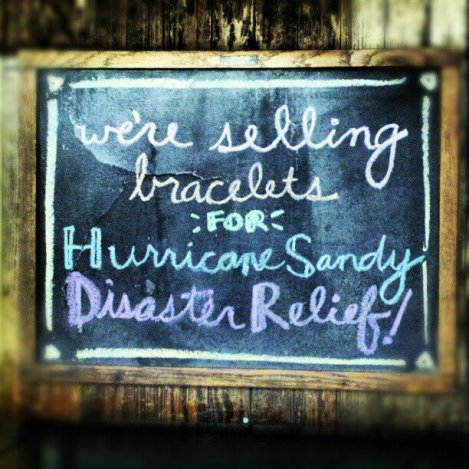 we're selling
bracelets
FOR
Hurricane Sandy
Disaster Relief!